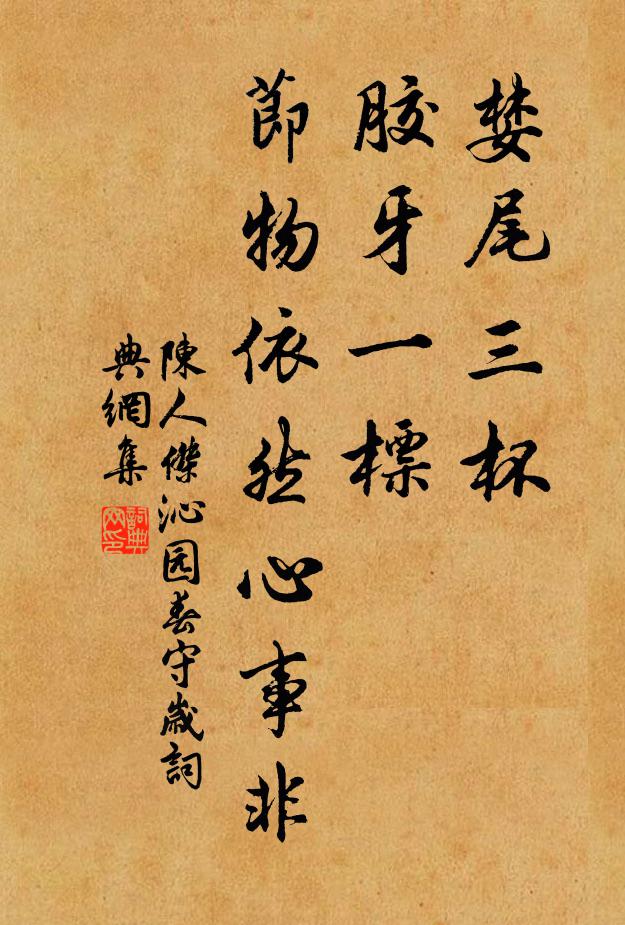 婪尾三杯
胶牙一標
節物依然心事非
陳人傑沁园春守歲詞
典網集
詞典網印